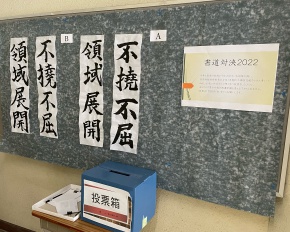 書道対決2022
A
不撓不屈
領域展開
B
不撓不屈
領域展開
投票箱